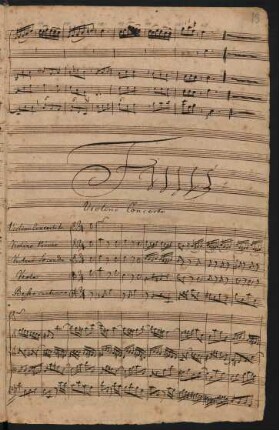 Finis
Violino Concerto
Violino Concertato
Violino Primo
Violino Secondo
Viola
Basso continuo